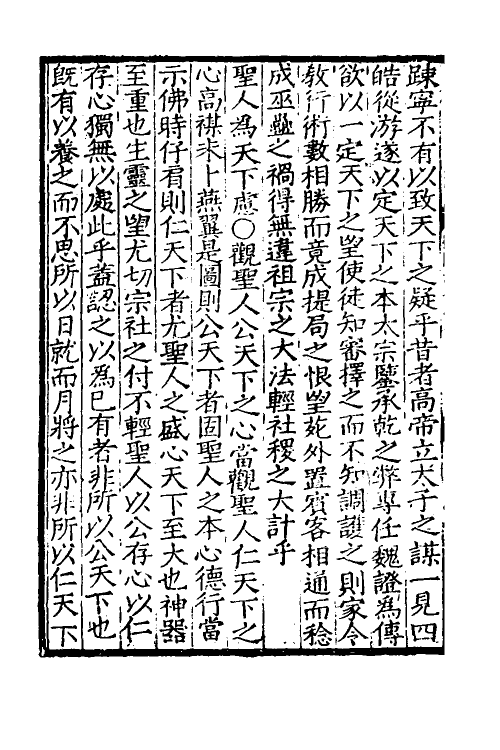 踈寧不有以致天下之疑乎昔者高帝立太子之謀一見四
皓從游遂以定天下之本太宗鑒承乾之弊專任魏證為傳
欲以一定天下之望使徒知審擇之而不知調護之則家令
敎行術數相勝而竟成提局之恨望苑外置賓客相通而稔
成巫蠱之禍得無違祖宗之大法輕社稷之大計乎
聖人為天下慮○觀聖人公天下之心當觀聖人仁天下之
心高禖未卜燕翼是圖則公天下者固聖人之本心德行當
示佛時仔肩則仁天下者尤聖人之盛心天下至大也神器
至重也生靈之望尤切宗社之付不輕聖人以公存心以仁
存心獨無以處此乎蓋認之以為已有者非所以公天下也
旣有以養之而不思所以日就而月將之亦非所以仁天下